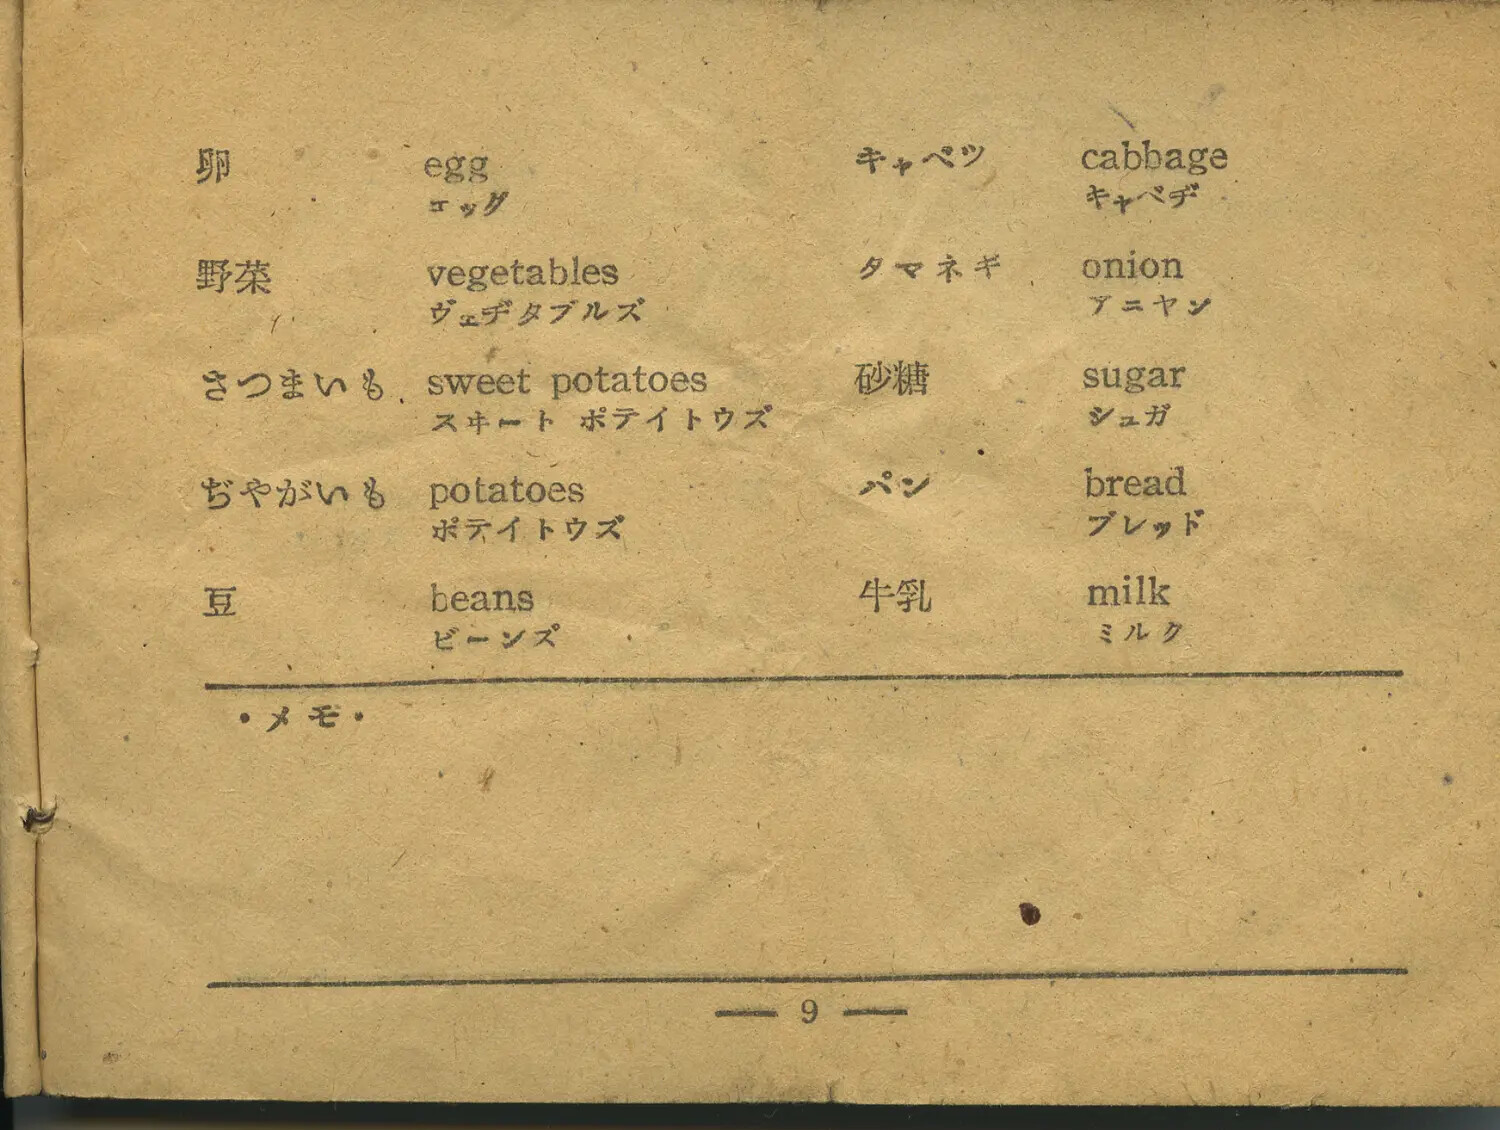 卵 egg
エッグ
野菜 vegetables
ヴェヂタブルズ
さつまいも sweet potatoes
スヰート ポテイトウズ
ぢやがいも potatoes
ポテイトウズ
豆 beans
ビーンズ
キャベツ cabbage
キャベヂ
タマネギ onion
アニヤン
砂糖 sugar
シュガ
パン bread
ブレッド
牛乳 milk
ミルク
・メモ・
— 9 —